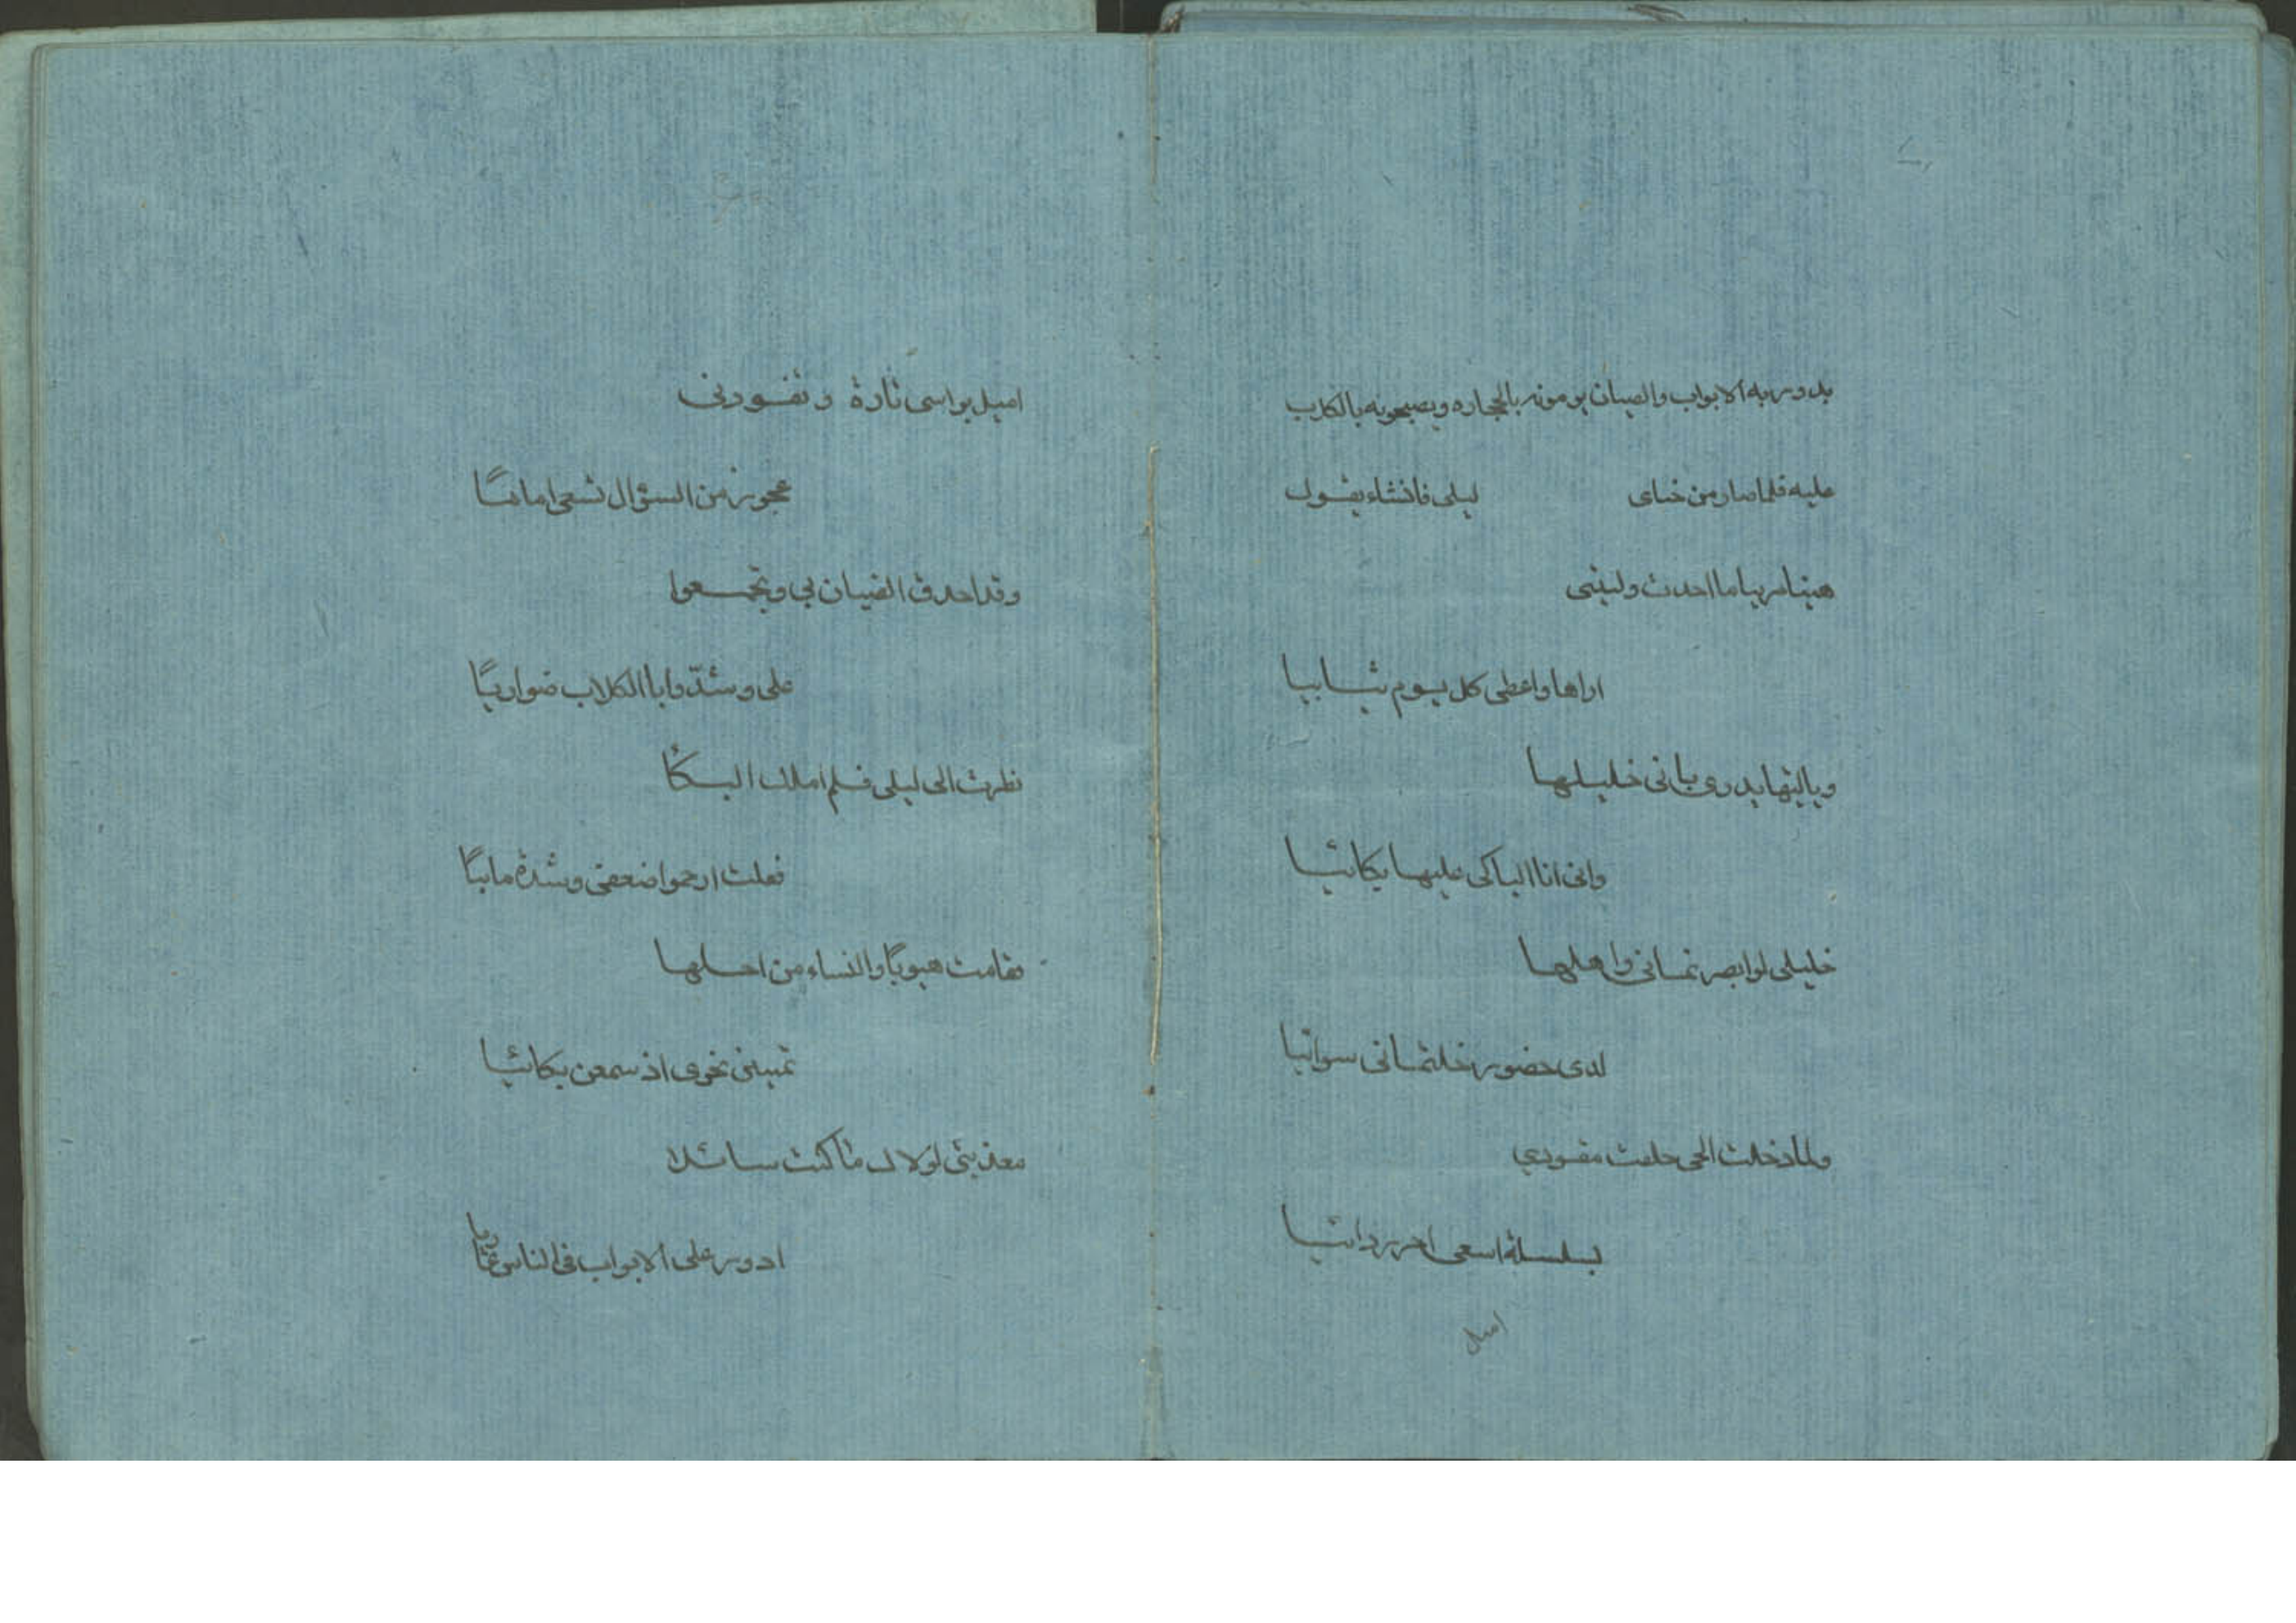 يدور به الابواب والصبيان يرمونه بالحجاره ويصيحونه بالكلاب
عليه فلما صار من خباى ليلى فانشاء يقول
هنيا مريا ما احدث وليتنى
اراها واعطى كل يوم ثيابيا
وياليتها يدرى بانى خليلها
وانى انا الباكى عليها بكائيا
خليلى لو ابصرتمانى واهلها
لدى حضور خلتمانى سوائيا
ولما دخلت الحى خلفت مقودي
بسلسلة اسعى اجر ردائيا
اميل
اميل براسى تارة وتقودنى
عجوز من السؤال تسعى اماميًا
وقد احدق الصبيان بي وتجمعوا
على وشدّوا باالكلاب ضواريًا
نظرت الى ليلى فلم املك البكاء
فقلت ارحموا ضعفى وشدة مابيًا
فقامت هبوبًا والنساء من اجلها
تمشين نحوى اذ سمعن بكائيا
معذبتى لولاك ما كنت سائلا
ادور على الابواب فى الناس عاريا